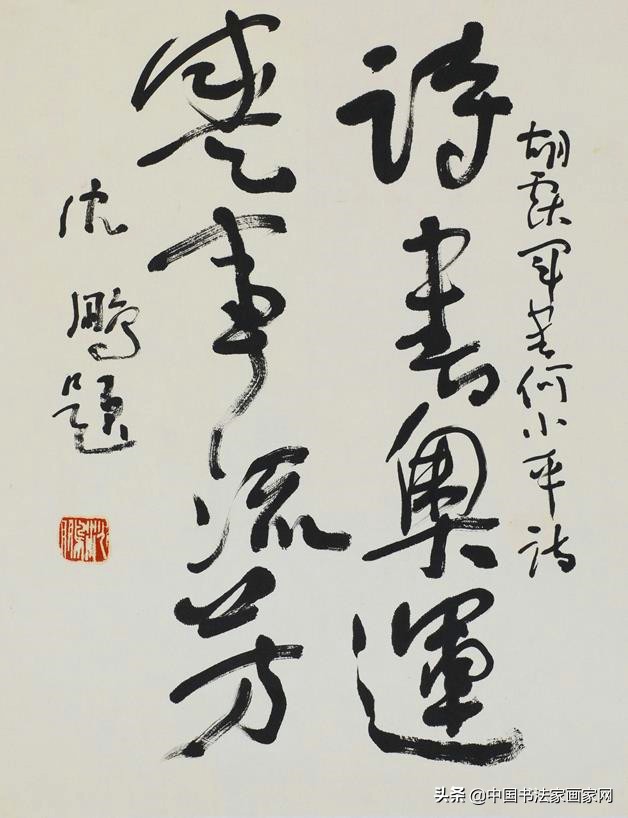 胡军书何小平诗
诗書奥運
盛事流芳
沈鹏题
沈鹏
头条 @中国书法家画家网